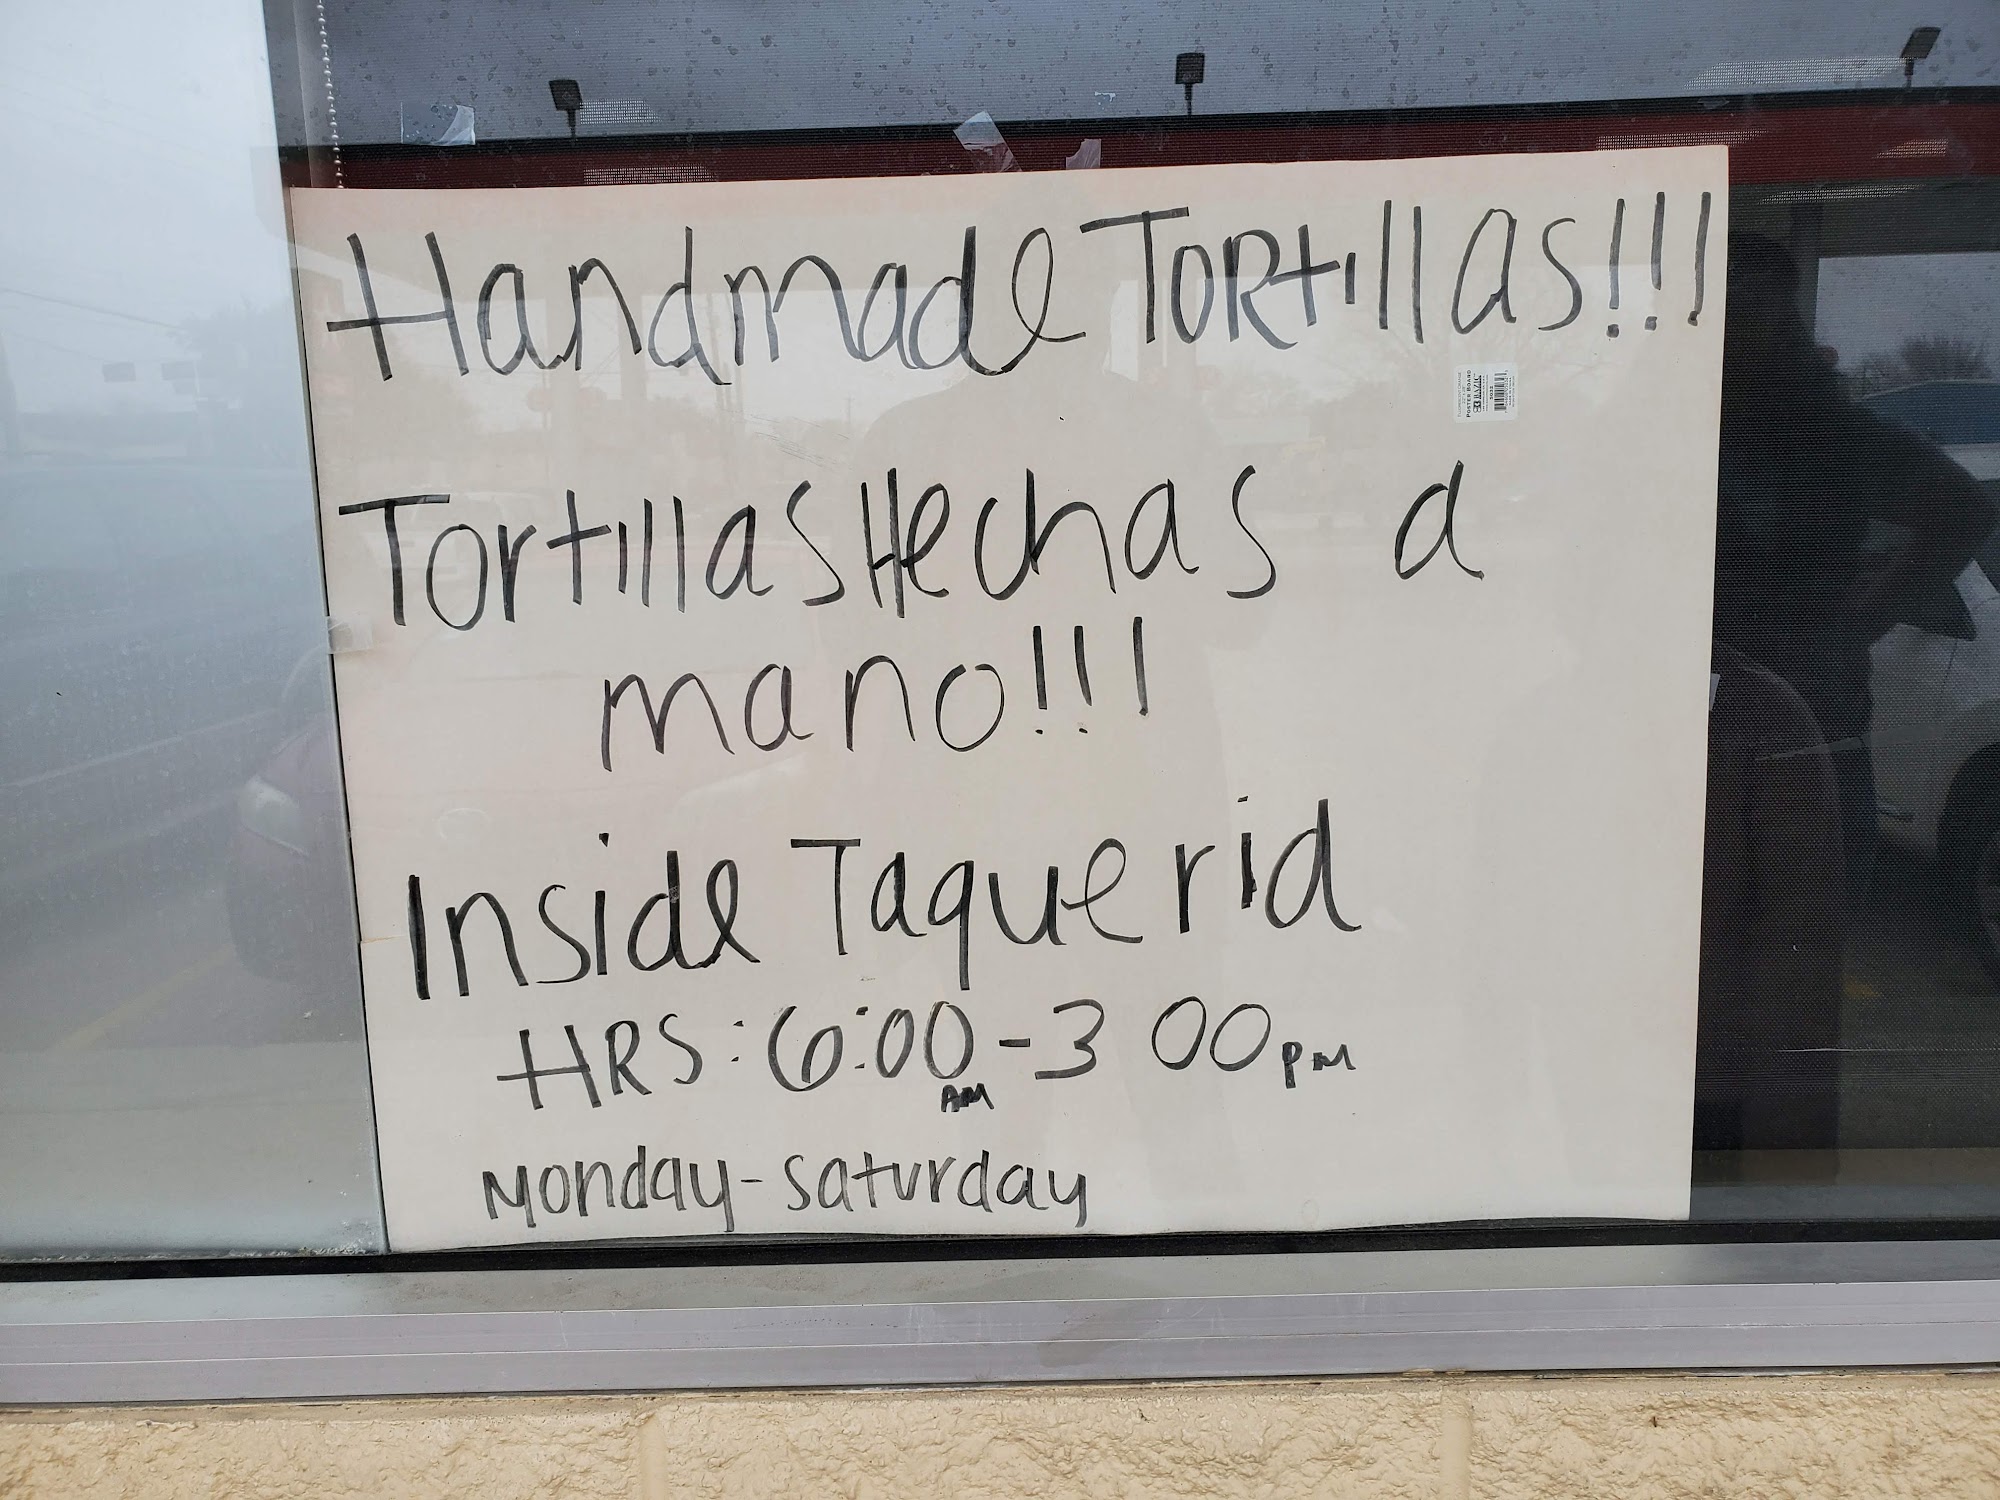 Handmade TORtillas!!!
POSTER BOARD
BAZIC
Tortillas Hechas a
mano!!!
Inside Taqueria
HRS: 6:00 AM - 3 00 PM
Monday - Saturday